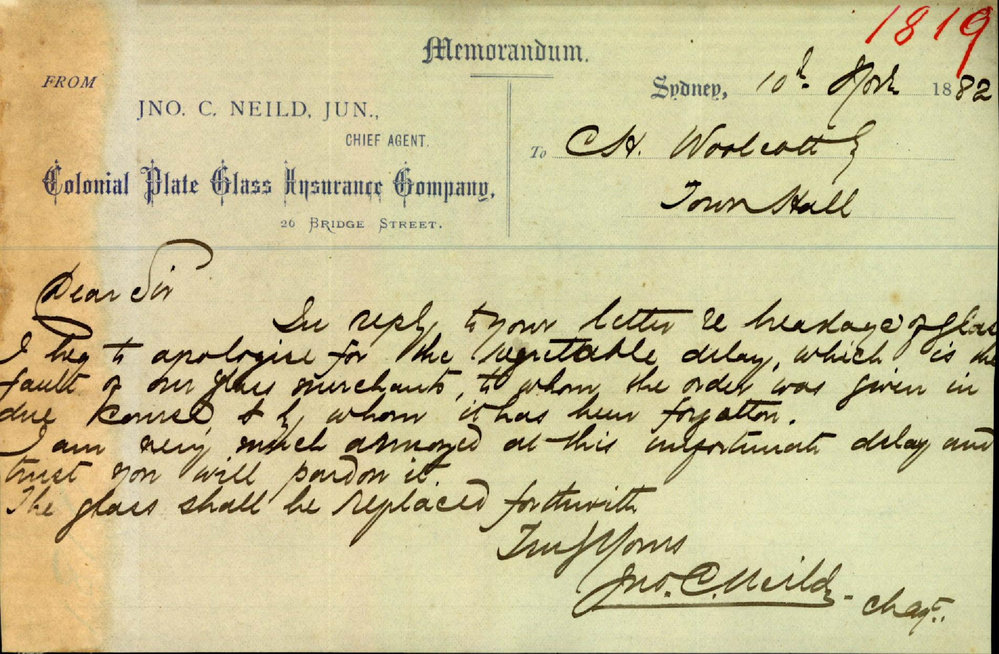 1819
Memorandum.
FROM
JNO. C. NEILD, JUN.,
CHIEF AGENT.
Colonial Plate Glass Insurance Company,
26 BRIDGE STREET.
Sydney, 10th April 1882
To C H. Woolcott Esq
Town Hall
Dear Sir
In reply to your letter re breakage of Glass
I beg to apologise for the regrettable delay, which is the
fault of our glass merchants, to whom the order was given in
due course & by whom it has been forgotten.
I am very much annoyed at this unfortunate delay and
trust you will pardon it.
The glass shall be replaced forthwith
Truly Yours
Jno. C. Neild
Ch Agt.